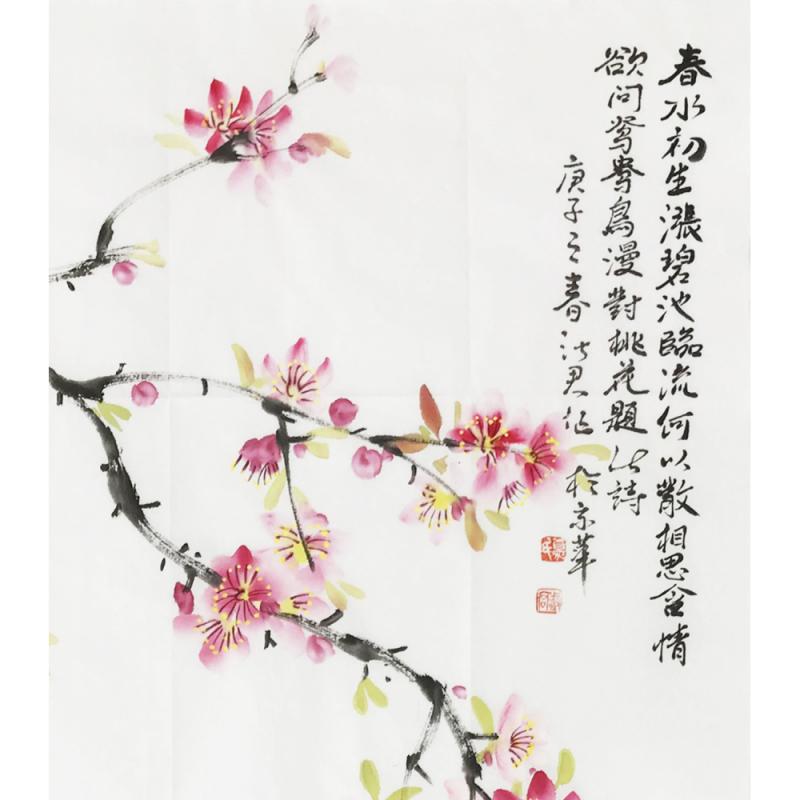 春水初生漲碧池臨流何以散相思含情
欲问鸳鸯鳥漫對桃花題此詩
庚子之春沽君作於京華